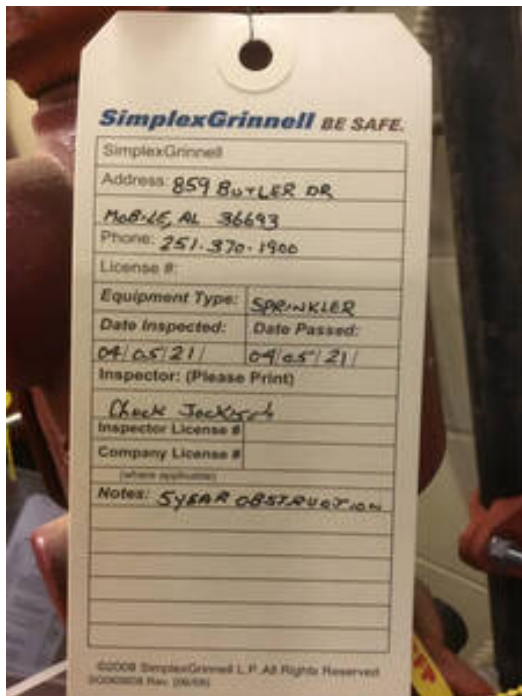 SimplexGrinnell BE SAFE.
SimplexGrinnell
Address: 859 BUTLER DR
MOBILE, AL 36693
Phone: 251-370-1900
License #:
Equipment Type: SPRINKLER
Date Inspected: Date Passed:
04/05/21/ 04/05/21/
Inspector: (Please Print)
Chuck Jackson
Inspector License #
Company License #
(where applicable)
Notes: 5 YEAR OBSTRUCTION
©2008 SimplexGrinnell L.P. All Rights Reserved